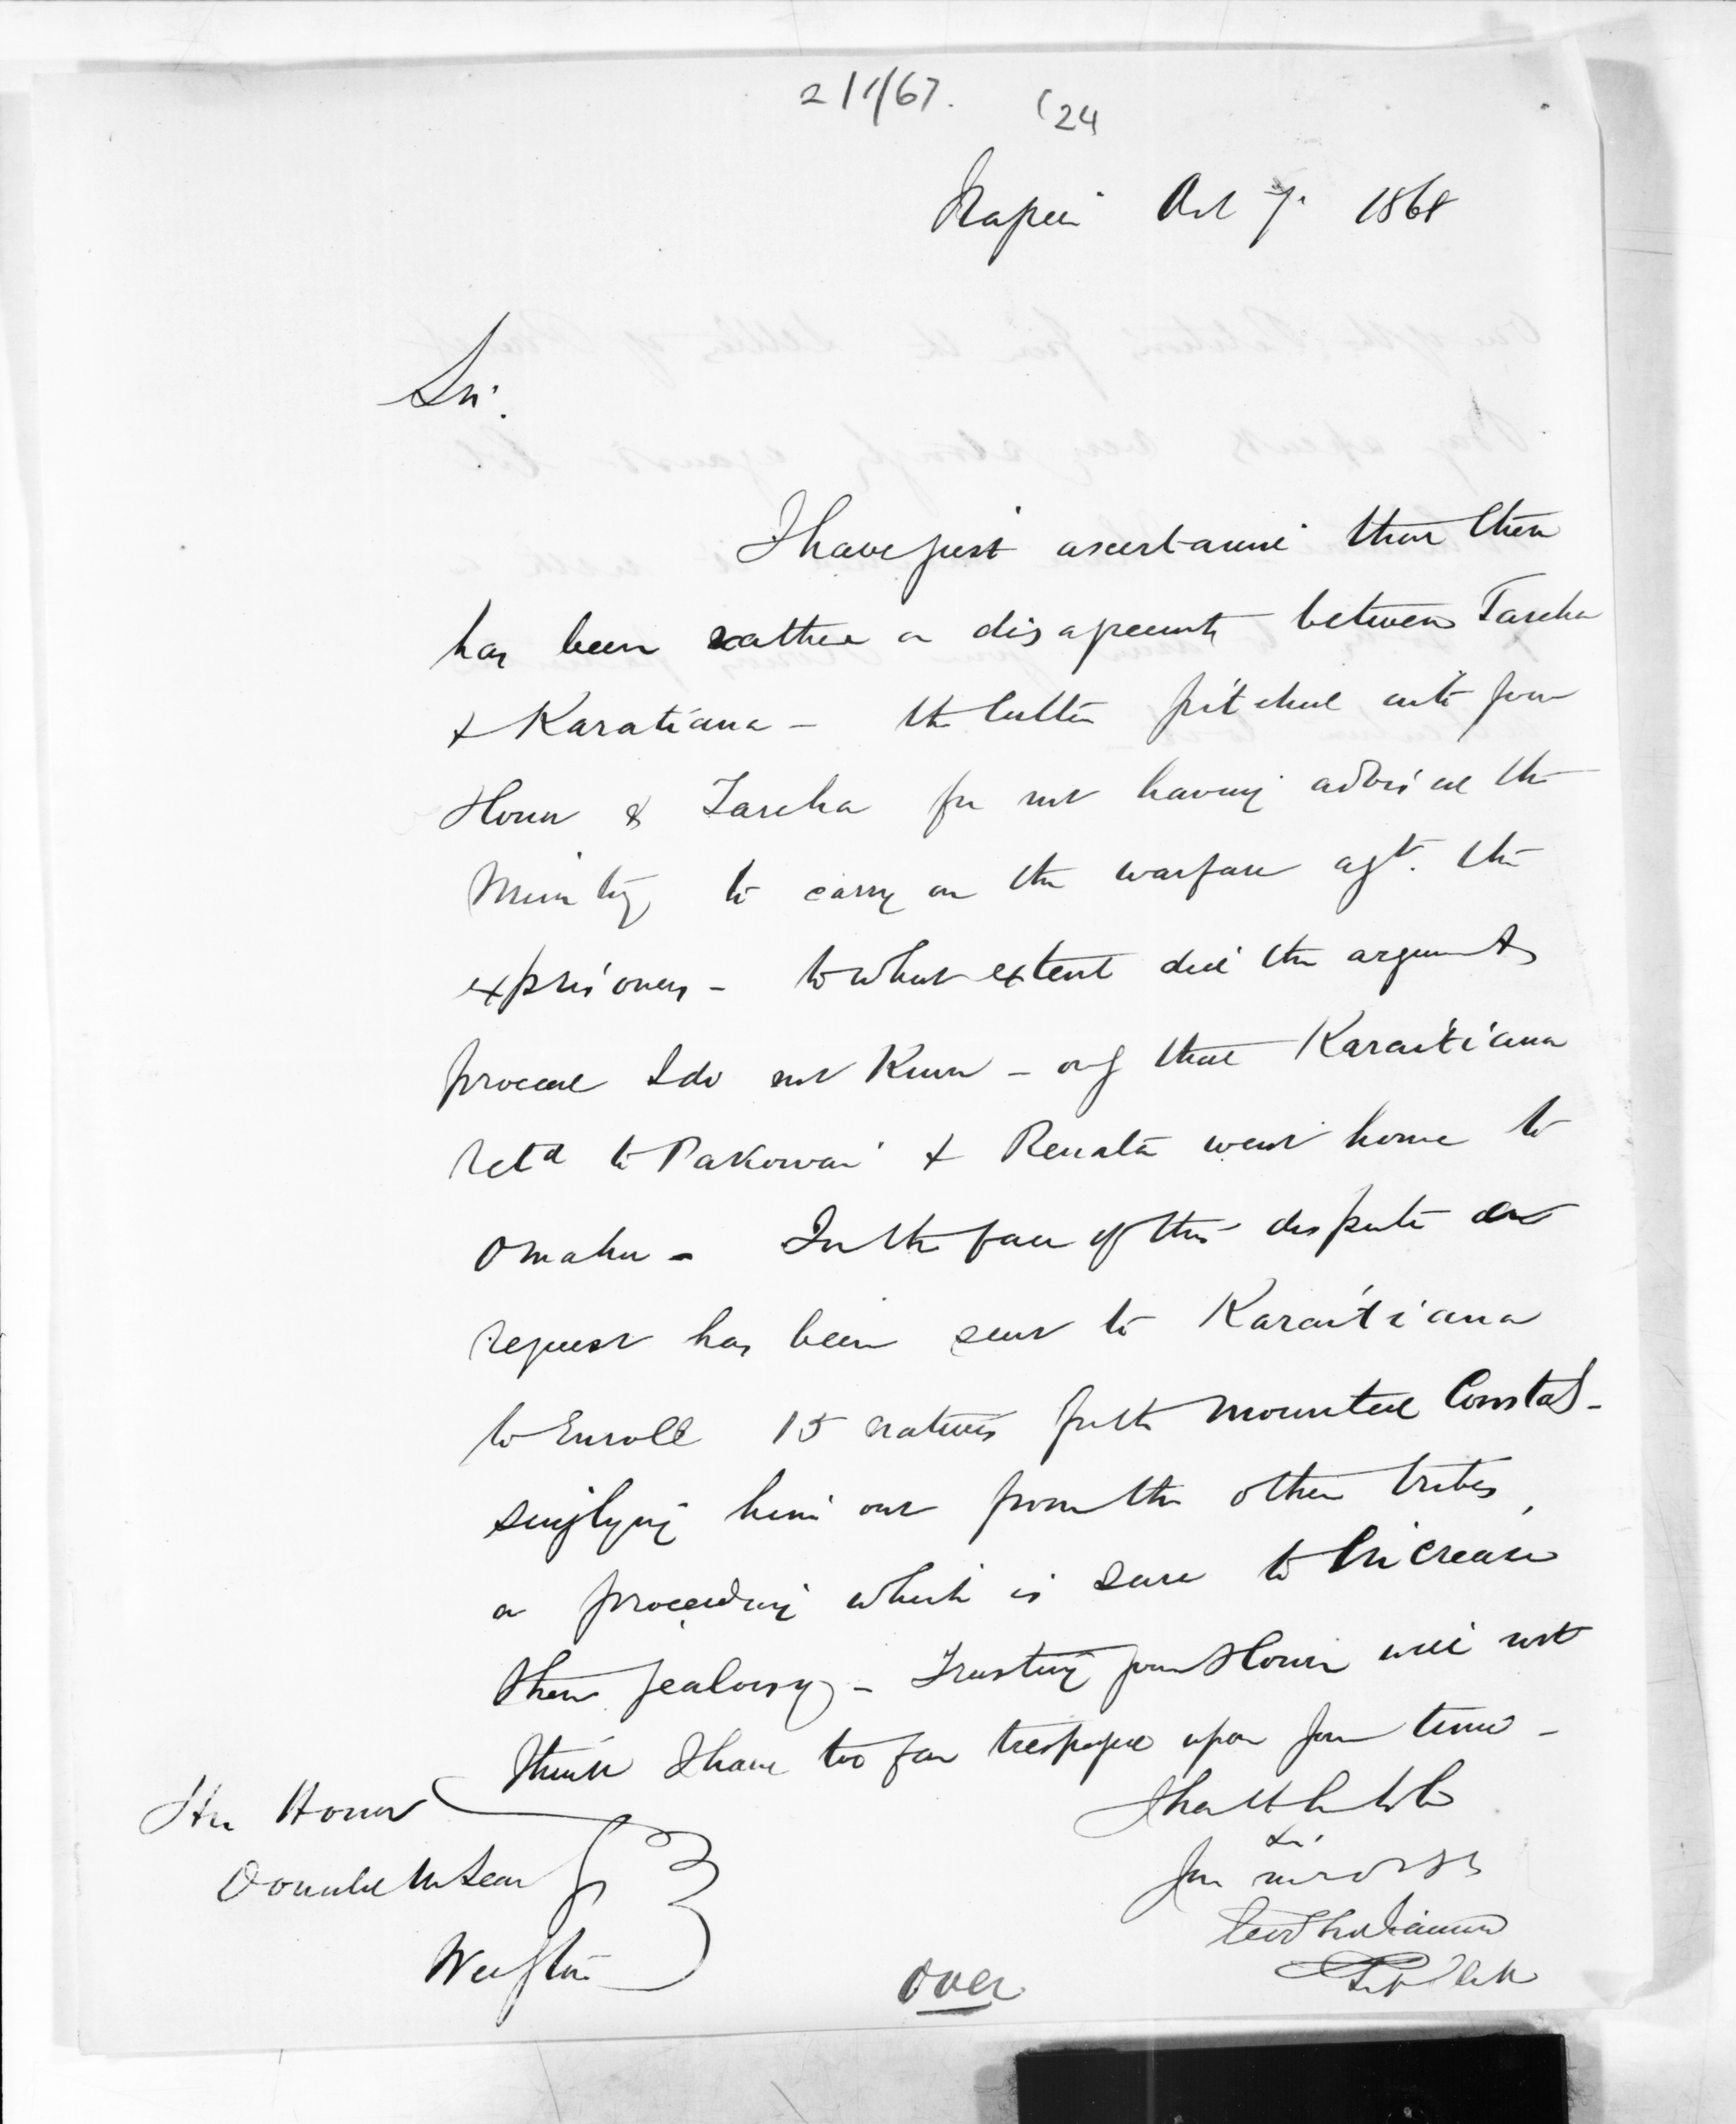 2/1/67. (24
Napier Oct 7. 1868
Sir.
I have just ascertained that there
has been rather a disagreement between Tareha
& Karaitiana - the latter pitched into your
Honor & Tareha for not having advised the
Ministry to carry on the warfare agt. the
exprisoners - to what extent did the arguments
proceed I do not Know - only that Karaitiana
Retd to Pakowai & Renata went home to
Omahu - In the face of this dispute a
request has been sent to Karaitiana
to Enroll 15 natives for the mounted Constab-
singling him out from the other tribes,
a proceeding which is sure to increase
their jealousy - Trusting your Honor will not
think I have too far trespassed upon your time -
I have the honor to be
Sir
Your most obt
servt
His Honor
Donald McLean
Wellington
over